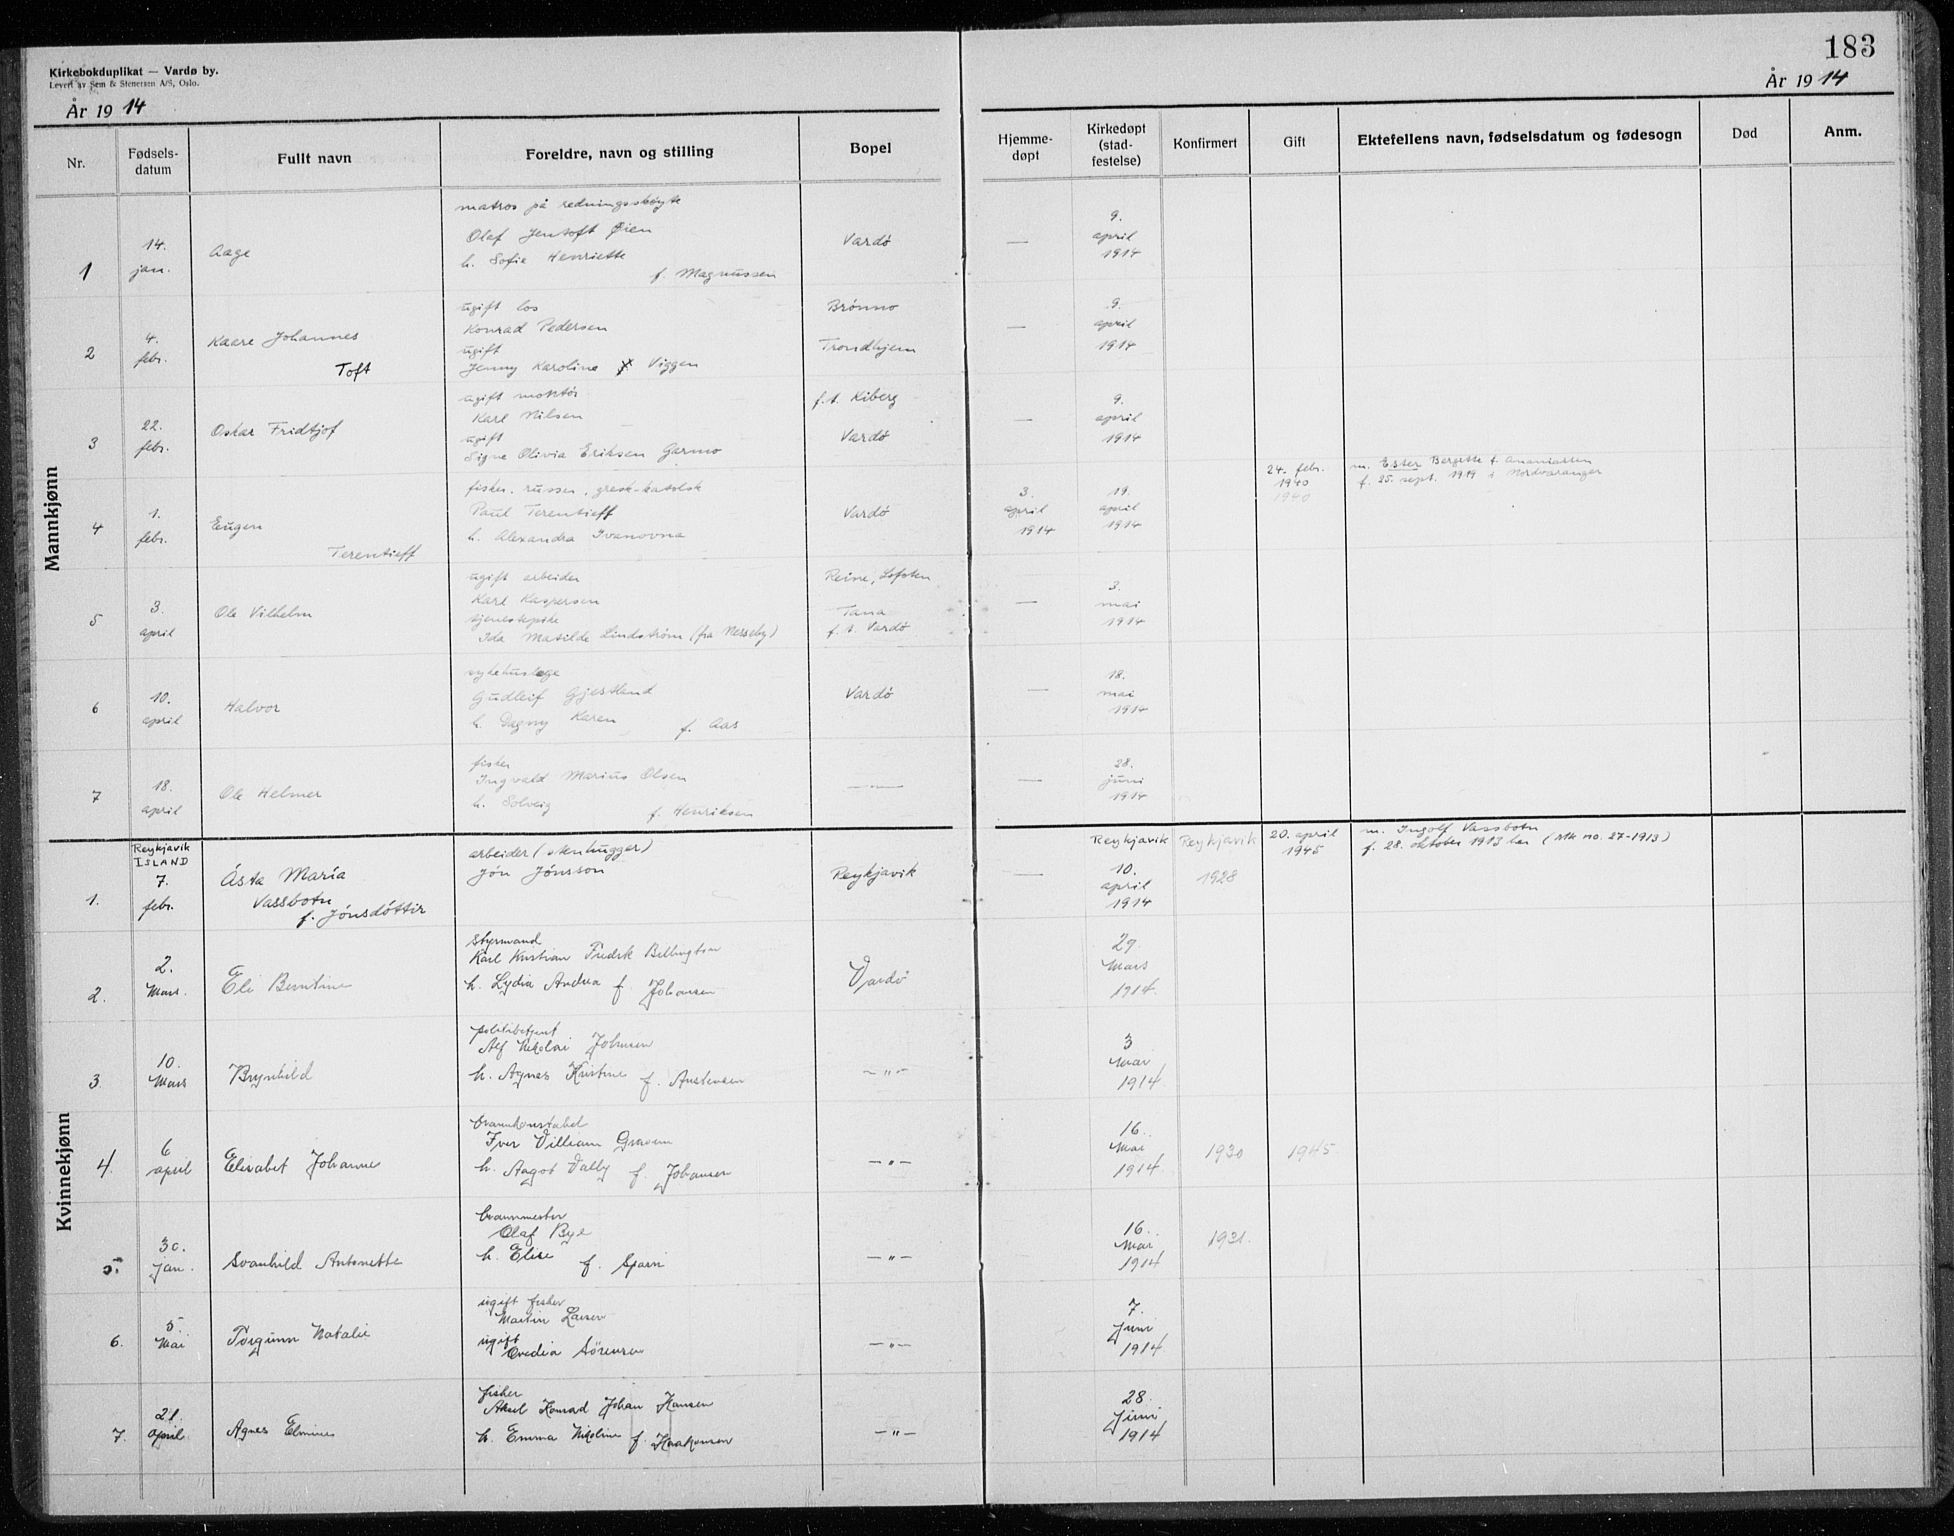 Kirkebokduplikat — Vardø by.
Levert av Sem & Stenersen A/S, Oslo.
183
År 1914
År 1914
Nr.
Fødsels-
datum
Fullt navn
Foreldre, navn og stilling
Bopel
Hjemme-
døpt
Kirkedøpt
(stad-
festelse)
Konfirmert
Gift
Ektefellens navn, fødselsdatum og fødesogn
Død
Anm.
Mannkjønn
1
14.
jan.
Aage
matros på redningsskøyte
Olaf Jentoft Øien
h. Sofie Henriette
f. Magnussen
Vardö
—
9.
april
1914
2
4.
febr.
Kaare Johannes
Toft
ugift los
Konrad Pedersen
ugift
Jenny Karoline Viggen
Brönno
Trondhjem
—
9.
april
1914
3
22.
febr.
Oskar Fridtjof
ugift
Karl Nilsen
ugift
Signe Olivia Eriksen Garmo
f.t. Kiberg
Vardö
—
9.
april
1914
4
1.
febr.
Eugen
Terentieff
fisker, russer, gresk-katolsk
Paul Terentieff
h. Alexandra Ivanovna
Vardö
3.
april
1914
19.
april
1914
24. febr.
1940
1940
m. Ester Bergette f. Ananiassen
f. 25. sept. 1919 i Nordvaranger
5
3.
april
Ole Vilhelm
ugift arbeider
Karl Kaspersen
tjenestepike
Ida Matilde Lindström (fra Nesseby)
Reine, Lofoten
Tana
f.t. Vardö
—
3.
mai
1914
6
10.
april
Halvor
sykehuslege
Gudleif Gjestland
h. Dagny Karen
f. Aas
Vardö
—
18.
mai
1914
7
18.
april
Ole Helmer
fisker
Ingvald Marius Olsen
h. Solveig
f. Henriksen
—"—
—
28.
juni
1914
Kvinnekjønn
1.
Reykjavik
ISLAND
7.
febr.
Ásta María
Vassbotn
f. Jónsdóttir
arbeider (stenhugger)
Jón Jónsson
Reykjavik
—
Reykjavik
10.
april
1914
Reykjavik
1928
20. april
1945
m. Ingolf Vassbotn
f. 28. oktober 1913 her (Mk no. 27-1913)
2.
2.
Mars.
Eli Berntine
Styrmand
Karl Kristian Fredrk Bellington
h. Lydia Andrea f. Johansen
Vardø
29.
Mars
1914.
3.
10.
Mars
Brynhild
politibetjent
Alf Nikolai Johnsen
h. Agnes Kristine f. Austensen
—"—
3
Mai
1914
4.
6
april
Elisabet Johanne
brannkonstabel
Iver Villiam
h. Aagot Valby f. Johansen
—"—
16.
Mai
1914
1930
1945
5.
30.
jan.
Svanhild Antonette
brannmester
Olaf Bye
h. Elise
f. Sparri
—"—
16.
Mai
1914
1931.
6.
5
Mai
Torgunn Natalie
ugift fisker
Martin Larsen
ugift
Ovedia Sørensen
—"—
7.
Juni
1914
7.
21.
april
Agnes Elmine
fisker
Aksel Konrad Johan Hansen
h. Emma Nikoline f. Haakonsen
—"—
28.
Juni
1914